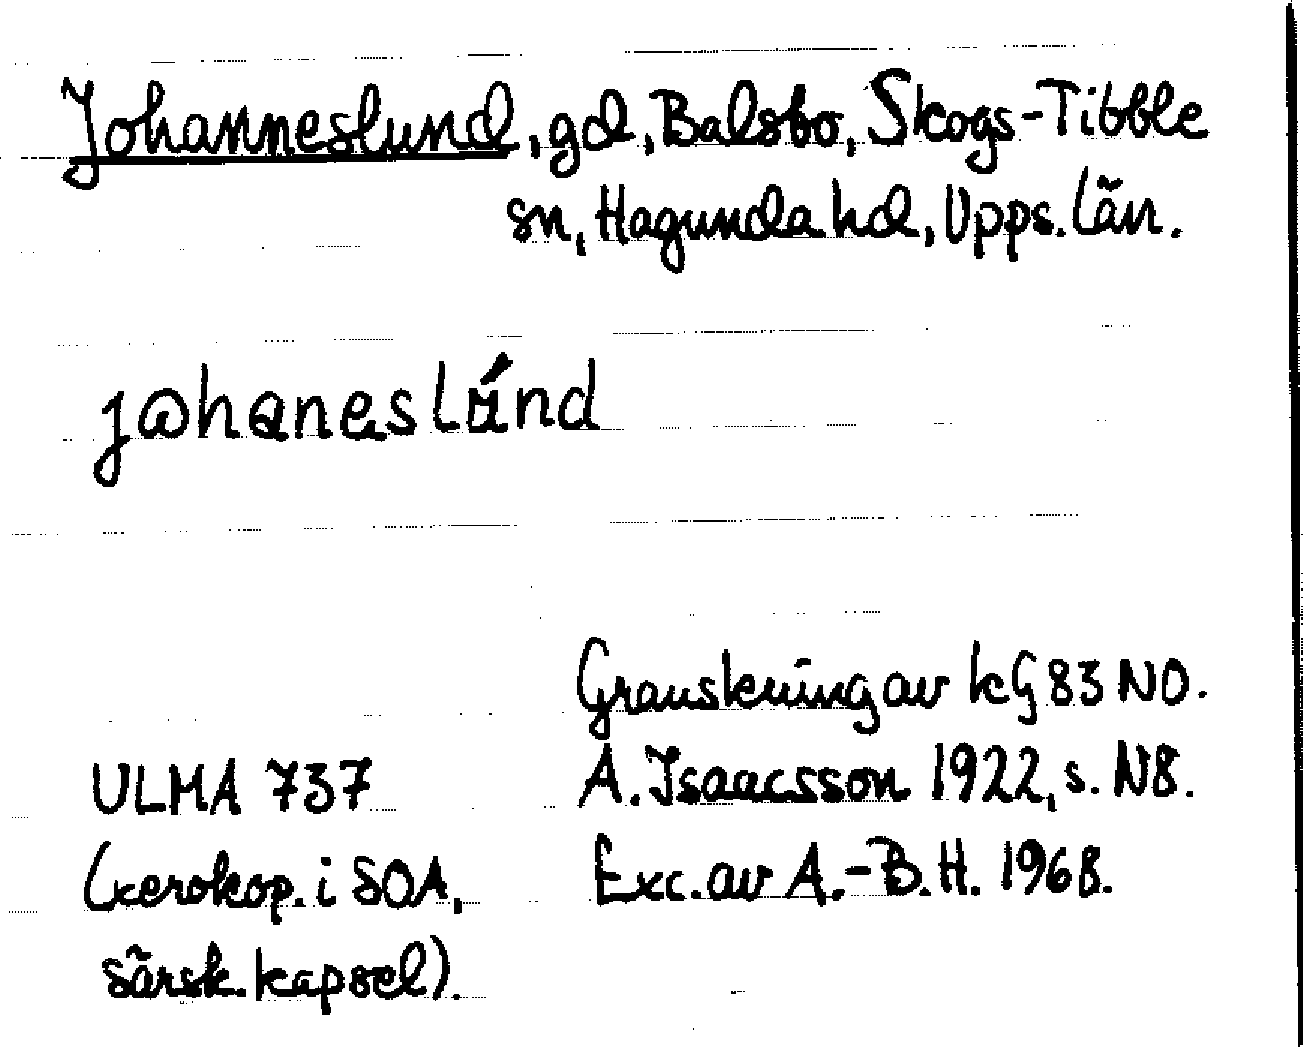 Johanneslund, gd, Balsbo, Skogs-Tibble
sn, Hagunda hd, Upps. län.
johaneslúnd
Granskning av kG 83 NO.
ULMA 737
A. Isaacsson 1922, s. N8.
(xerokop. i SOA,
Exc. av A.-B.H. 1968.
särsk. kapsel).